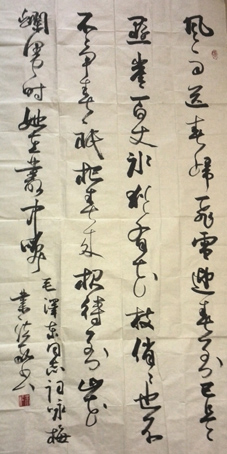 風雨送春归飛雪迎春到已是
悬崖百丈冰犹有花枝俏々也不
不争春只把春来报待到山花
爛漫时她在叢中笑
毛澤东同志词咏梅